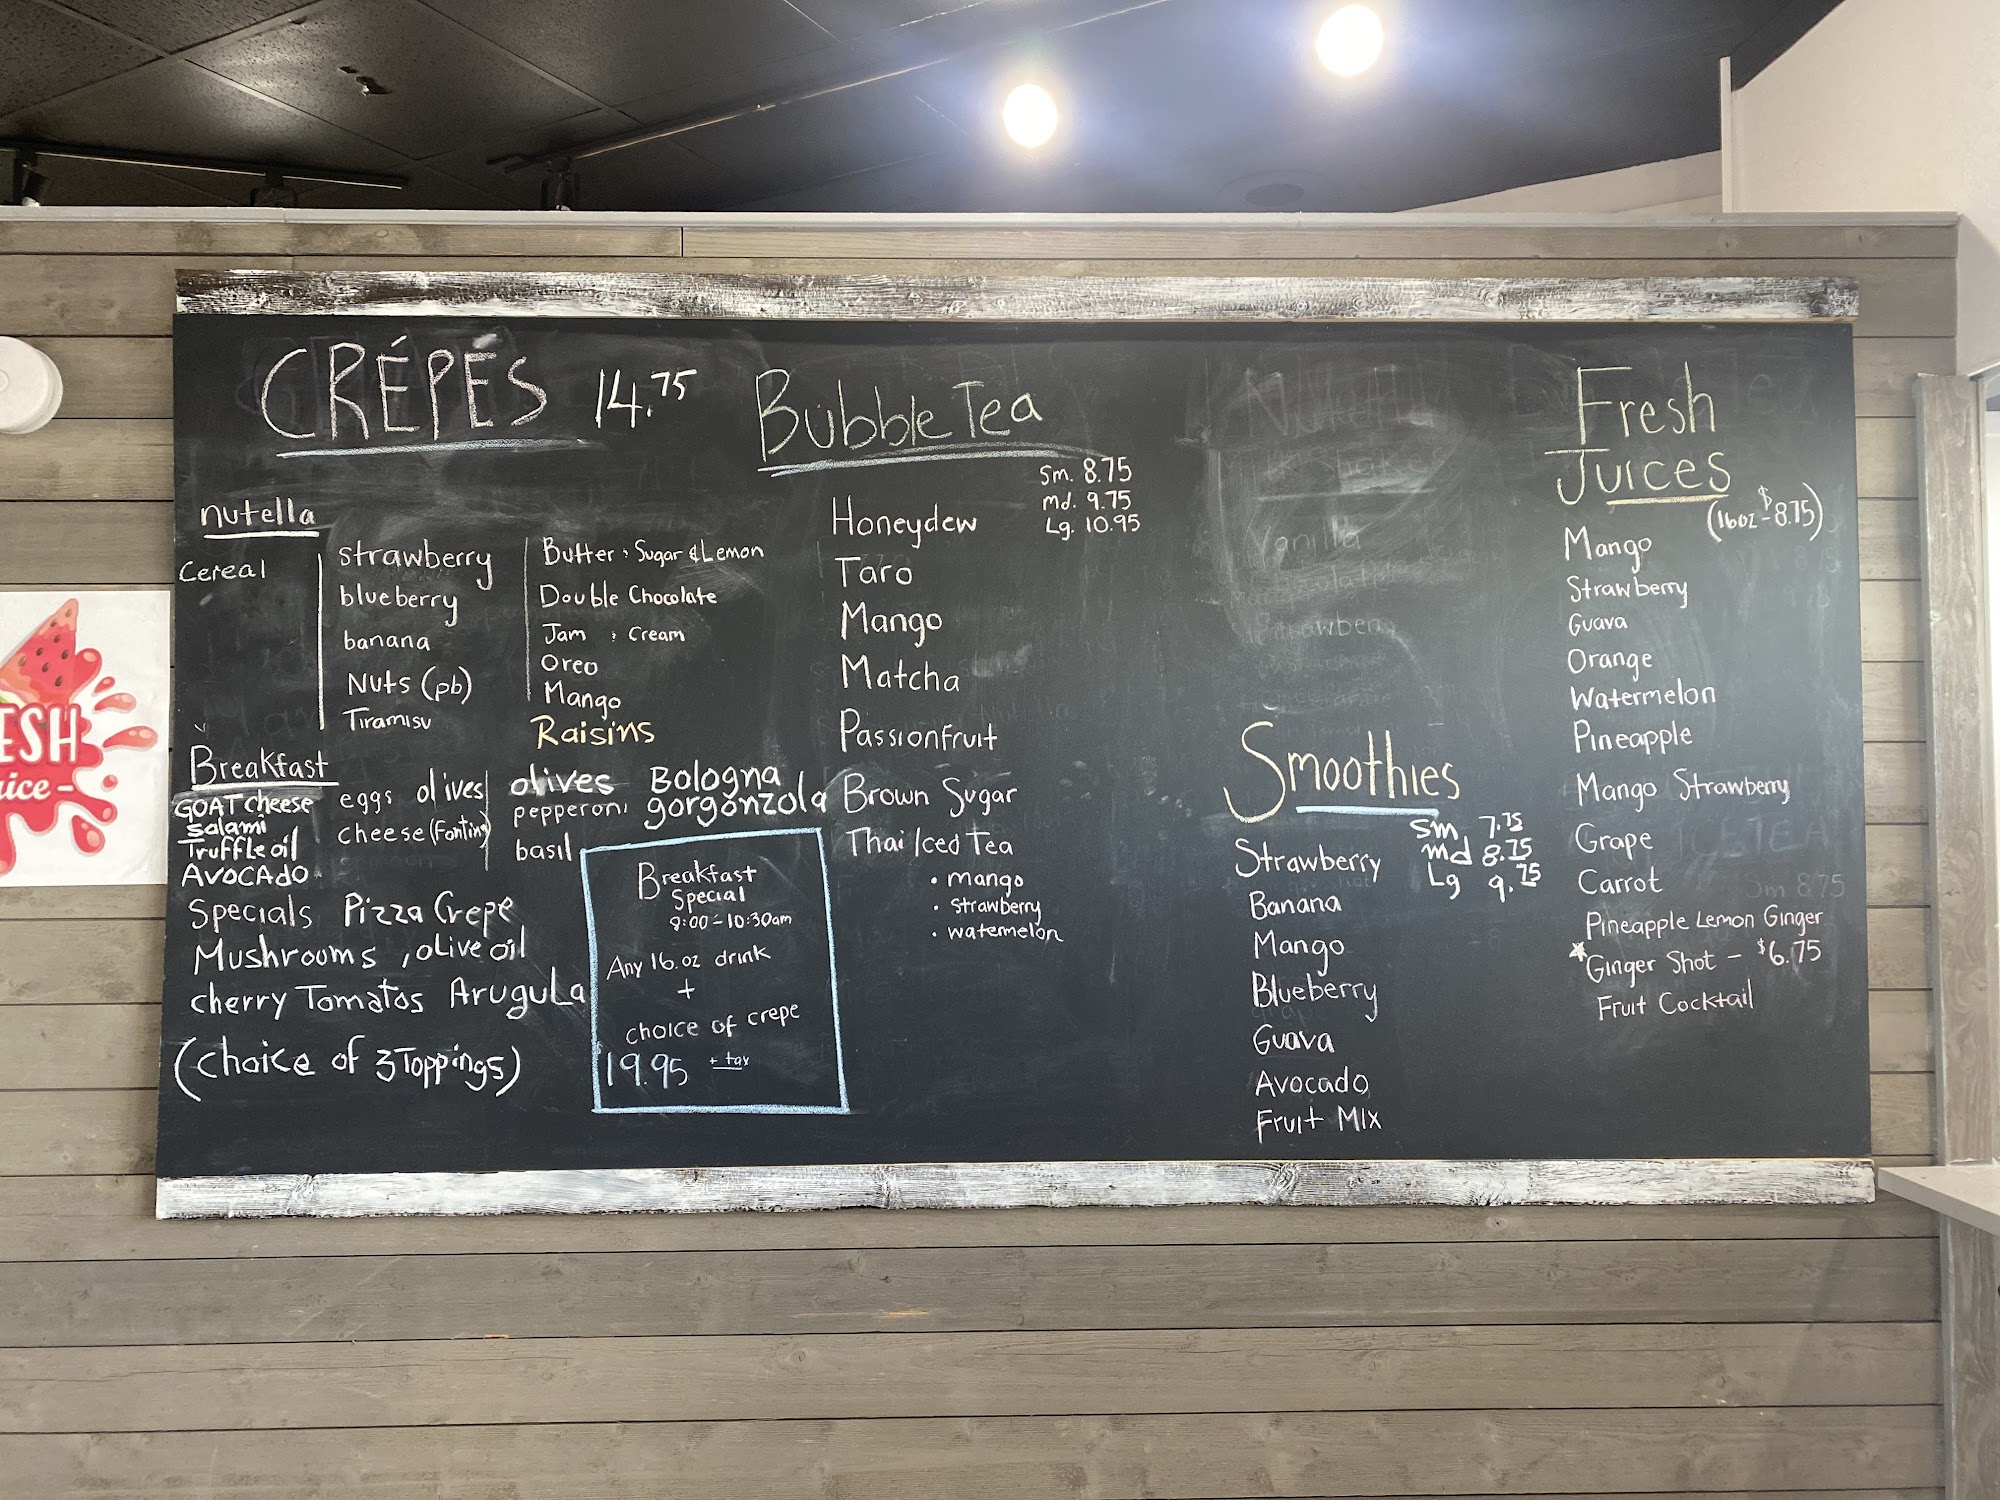 CRÉPÉS 14.75
nutella
Cereal
strawberry
blueberry
banana
Nuts (pb)
Tiramisu
Butter, Sugar & Lemon
Double Chocolate
Jam, Cream
Oreo
Mango
Raisins
Breakfast
GOAT cheese
Salami
Truffle oil
AVOCADO
eggs olives
cheese (Fontina)
olives
pepperoni
basil
Bologna
gorgonzola
Specials Pizza Crepe
Mushrooms, olive oil
cherry Tomatos Arugula
(choice of 3 Toppings)
Breakfast
Special
9:00-10:30am
Any 16.oz drink
+
choice of crepe
19.95 + tax
Bubble Tea
Sm. 8.75
md. 9.75
Lg. 10.95
Honeydew
Taro
Mango
Matcha
Passionfruit
Brown Sugar
Thai Iced Tea
• mango
• strawberry
• watermelon
Vanilla
Smoothies
Sm 7.75
md 8.75
Lg 9.75
Strawberry
Banana
Mango
Blueberry
Guava
Avocado
Fruit Mix
Fresh
Juices
(16oz - $8.75)
Mango
Strawberry
Guava
Orange
Watermelon
Pineapple
Mango Strawberry
Grape
ICE TEA
Carrot
Sm 8.75
Pineapple Lemon Ginger
*Ginger Shot - $6.75
Fruit Cocktail
ESH
uice -